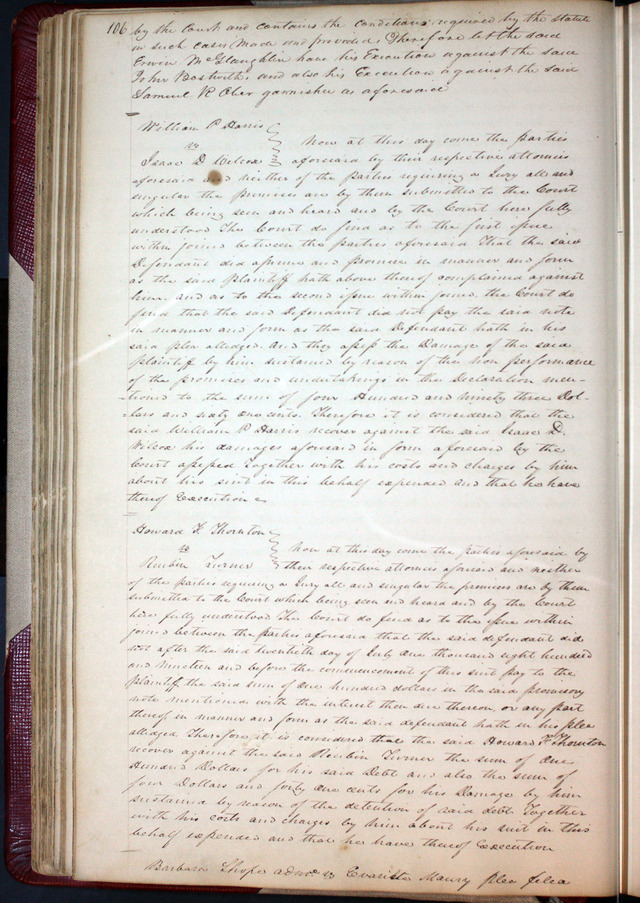 106 by the Court and contains the conditions required by the statute
in such cases Made and provided. Therefore let the said
Erwin McGlaughlin have his Execution against the said
John Bostwith and also his Execution against the said
Samuel R Ober garnishee as aforesaid
William P Harris
vs
Now at this day come the parties
Isaac D Wilcox aforesaid by their respective attornies
aforesaid and neither of the parties requiring a Jury all and
singular the premises are by them submitted to the Court
which being seen and heard and by the Court here fully
understood The Court do find as to the first issue
within joined between the parties aforesaid That the said
Defendant did assume and promise in manner and form
as the said plaintiff hath above thereof complained against
him. and as to the second issue within joined the Court do
find that the said Defendant did not pay the said note
in manner and form as the said Defendant hath in his
said plea alledged. And they assess the Damage of the said
plaintiff by him sustained by reason of the non performance
of the promises and undertakings in the Declaration men-
tioned to the sum of four Hundred and ninety three Dol-
lars and sixty one cents. Therefore it is considered that the
said William P Harris recover against the said Isaac D.
Wilcox his damages aforesaid in form aforesaid by the
Court assessed together with his costs and charges by him
about his suit in this behalf expended and that he have
thereof Execution
Howard F. Thornton
vs
Now at this day come the parties aforesaid by
Reubin Turner their respective attornies aforesaid and neither
of the parties requiring a Jury all and singular the premises are by them
submitted to the Court which being seen and heard and by the Court
here fully understood The Court do find as to the issue within
joined between the parties aforesaid that the said defendant did
not after the said twentieth day of July One thousand eight hundred
and nineteen and before the commencement of this suit pay to the
plaintiff the said sum of One hundred dollars in the said promisory
note mentioned with the interest then due thereon, or any part
thereof in manner and form as the said defendant hath in his plea
alledged Therefore it is considered that the said Howard F. Thornton
recover against the said Reubin Turner the sum of One
Hundred Dollars for his said Debt and also the sum of
four Dollars and forty one cents for his Damage by him
sustained by reason of the detention of said debt Together
with his costs and charges by him about his suit in this
behalf expended and that he have thereof Execution
Barbara admx vs Evariste Maury plea filed